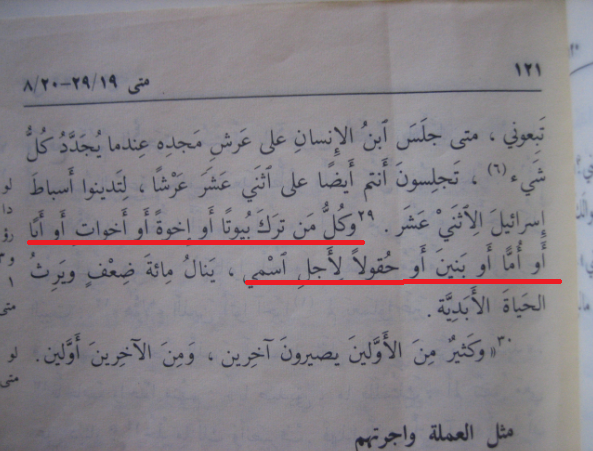 ١٢١
متى ١٩/٢٩-٢٠/٨
تَبِعوني ، متى جلَسَ ٱبنُ الإِنسانِ على عَرشِ مَجدِه عِندما يُجَدَّدُ كُلُّ
شَيء (٦) ، تَجلِسونَ أَنتم أَيضًا على ٱثنَي عَشَرَ عَرْشًا ، لِتَدينوا أَسباطَ
إِسرائيلَ الِٱثنَيْ عَشَرَ . ٢٩ وَكُلُّ مَن تَرَكَ بُيوتًا أَو إِخوةً أَو أَخواتٍ أَو أَبًا
أَو أُمًّا أَو بَنينَ أَو حُقولاً لِأَجلِ ٱسْمي ، يَنالُ مِائَةَ ضِعْفٍ ويَرِثُ
الحَياةَ الأَبَدِيَّة .
٣٠ «وكَثيرٌ مِنَ الأَوَّلينَ يصيرونَ آخِرين ، وَمِنَ الآخِرينَ أَوَّلين .
مثل العملة واجرتهم